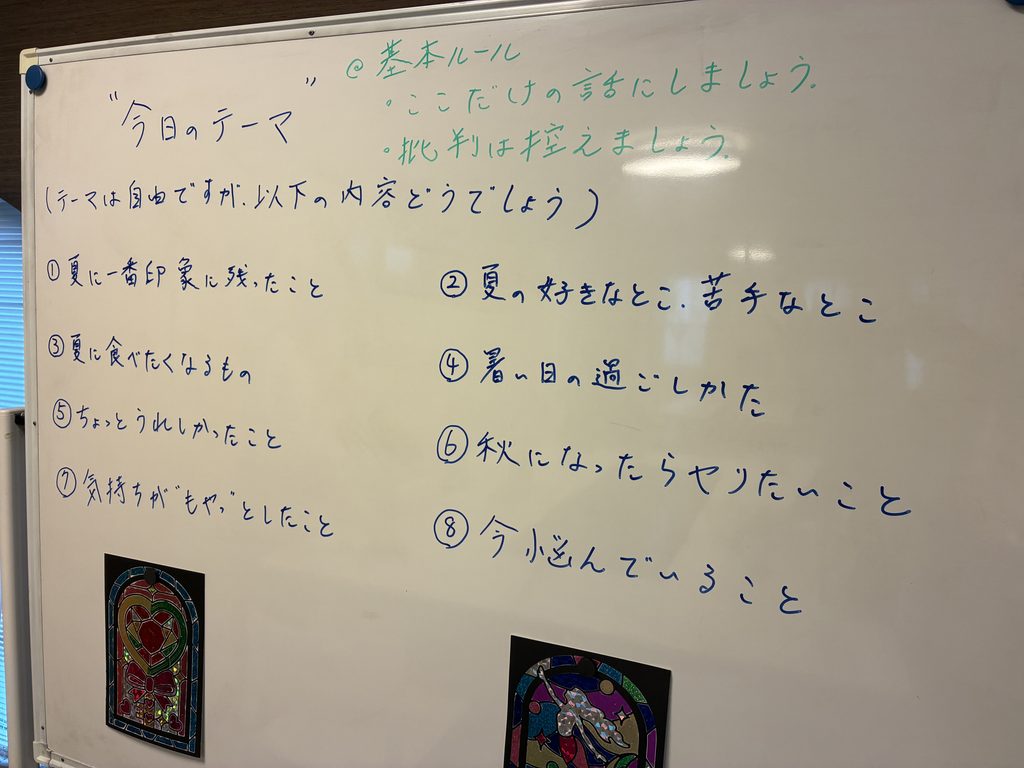 "今日のテーマ"
@ 基本ルール
・ここだけの話にしましょう.
・批判は控えましょう.
(テーマは自由ですが、以下の内容どうでしょう)
① 夏に一番印象に残ったこと
② 夏の好きなとこ、苦手なとこ
③ 夏に食べたくなるもの
④ 暑い日の過ごしかた
⑤ ちょっとうれしかったこと
⑥ 秋になったらやりたいこと
⑦ 気持ちが"もやっ"としたこと
⑧ 今悩んでいること